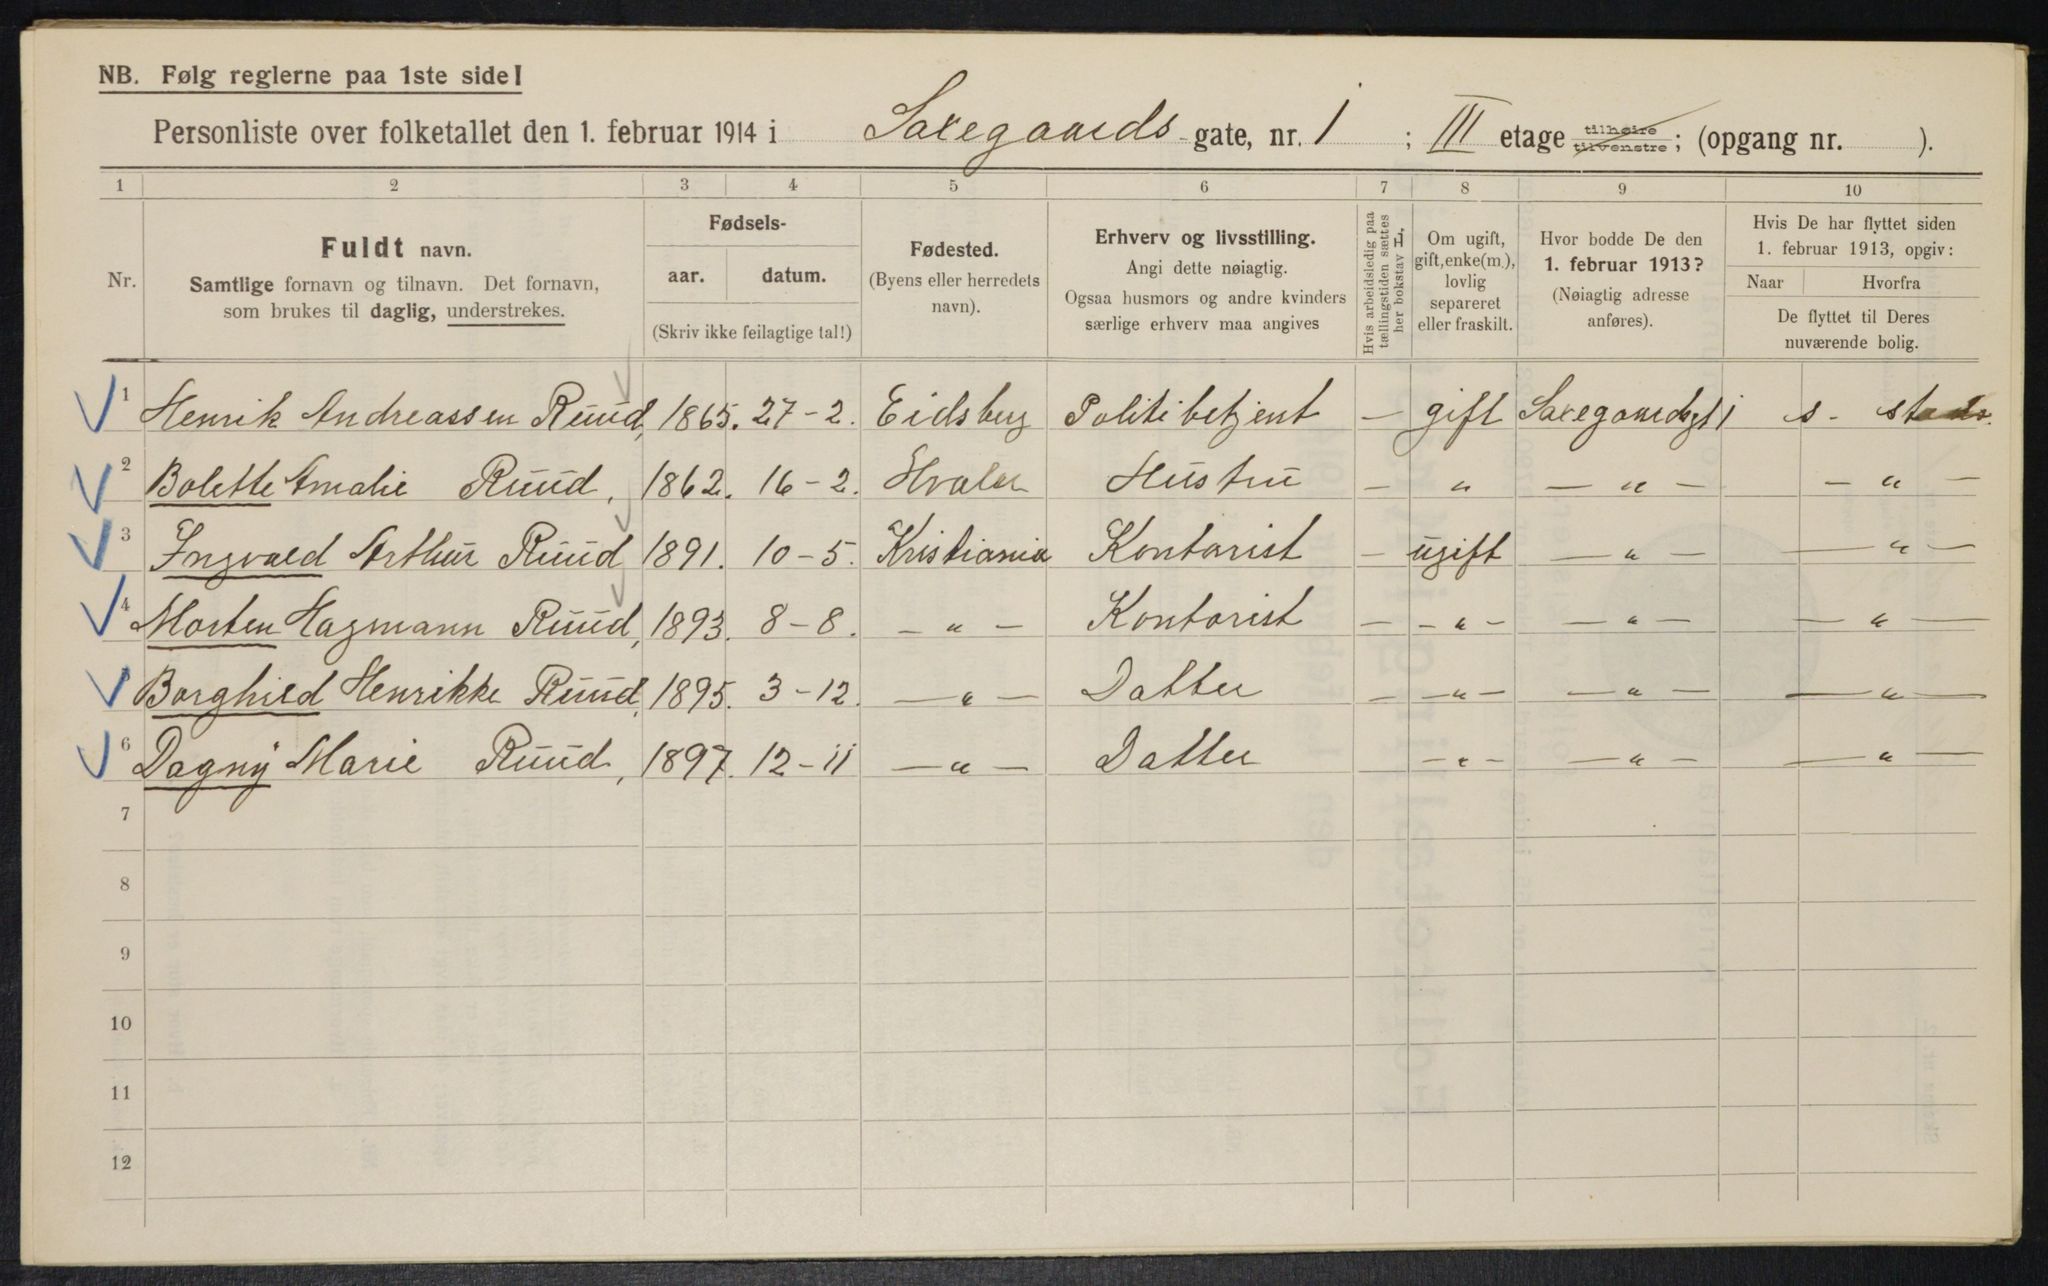 NB. Følg reglerne paa 1ste side!
Personliste over folketallet den 1. februar 1914 i Saxegaards gate, nr. 1 ; III etage tilhøire tilvenstre; (opgang nr. ).
1 2 3 4 5 6 7 8 9 10
Nr.
Fuldt navn.
Samtlige fornavn og tilnavn. Det fornavn,
som brukes til daglig, understrekes.
Fødsels-
aar. datum.
(Skriv ikke feilagtige tal!)
Fødested.
(Byens eller herredets
navn).
Erhverv og livsstilling.
Angi dette nøiagtig.
Ogsaa husmors og andre kvinders
særlige erhverv maa angives
Hvis arbeidsledig paa
tællingstiden sættes
her bokstav H.
Om ugift,
gift, enke(m.),
lovlig
separeret
eller fraskilt.
Hvor bodde De den
1. februar 1913?
(Nøiagtig adresse
anføres).
Hvis De har flyttet siden
1. februar 1913, opgiv:
Naar Hvorfra
De flyttet til Deres
nuværende bolig.
1 Henrik Andreassen Ruud, 1865. 27-2. Eidsberg Politibetjent — gift Saxegaardsgt 1 s. steds.
2 Bolette Amalie Ruud, 1862. 16-2. Hvaler Hustru — „ — „ — — „ —
3 Ingvald Arthur Ruud 1891. 10-5. Kristiania Kontorist — ugift — „ — — „ —
4 Morten Hagmann Ruud, 1893. 8-8. — „ — Kontorist — - „ - — „ — — „ —
5 Borghild Henrikke Ruud, 1895. 3-12. — „ — Datter — - „ - — „ — — „ —
6 Dagny Marie Ruud, 1897. 12-11 — „ — Datter - „ - — „ — — „ —
7
8
9
10
11
12